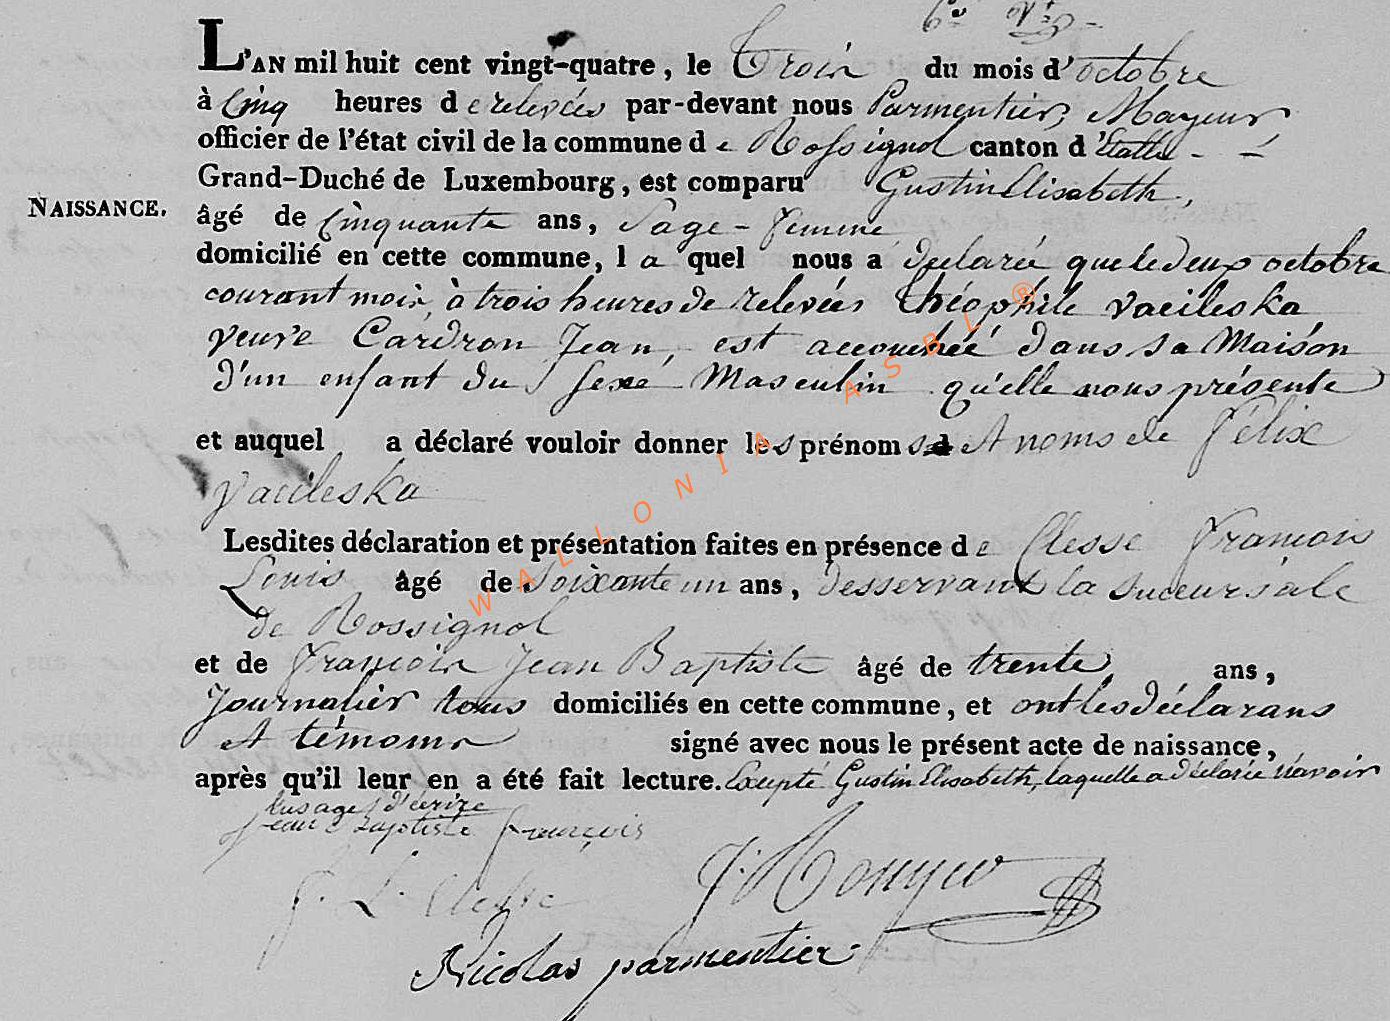 L'AN mil huit cent vingt-quatre, le Trois du mois d'octobre
à Cinq heures de relevées par-devant nous Parmentier, Mayeur,
officier de l'état civil de la commune de Rossignol canton d'Etalle - -
Grand-Duché de Luxembourg, est comparu Gustin Elisabeth,
NAISSANCE.
âgé de Cinquante ans, Sage-femme
domicilié en cette commune, la quel nous a déclaré que le deux octobre
courant mois, à trois heures de relevées Théophile Vacileska
veuve Cardron Jean, est accouchée dans sa Maison
d'un enfant du sexe Masculin qu'elle nous présente
et auquel a déclaré vouloir donner les prénoms et noms de Félix
Vacileska
Lesdites déclaration et présentation faites en présence de Clesse François
Louis âgé de soixante un ans, desservant la succursale
de Rossignol
et de François Jean Baptiste âgé de trente ans,
Journalier tous domiciliés en cette commune, et ont les déclarans
et témoins signé avec nous le présent acte de naissance,
après qu'il leur en a été fait lecture. Excepté Gustin Elisabeth, laquelle a déclarée n'avoir
l'usage d'écrire
Jean Baptiste françois
F. L. Clesse
Nicolas parmentier
WALLONIA ASBL ®